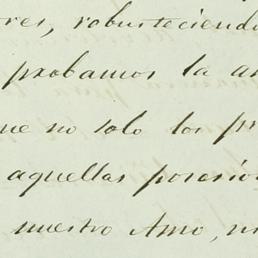 res, robusteciendo
probamos la an
ue no solo los pr
aquellas posesio
nuestro Amo, n